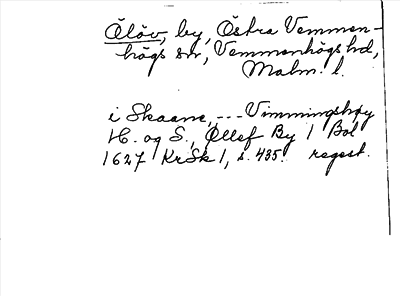 Ölöv, by, Östra Vemmen-
högs sn, Vemmenhögs hd,
Malm. l.
i Skaane, --- Vimmingshøy
H. og S., Øllef By 1 Bol
1627 KrSk 1, s. 435. regest.